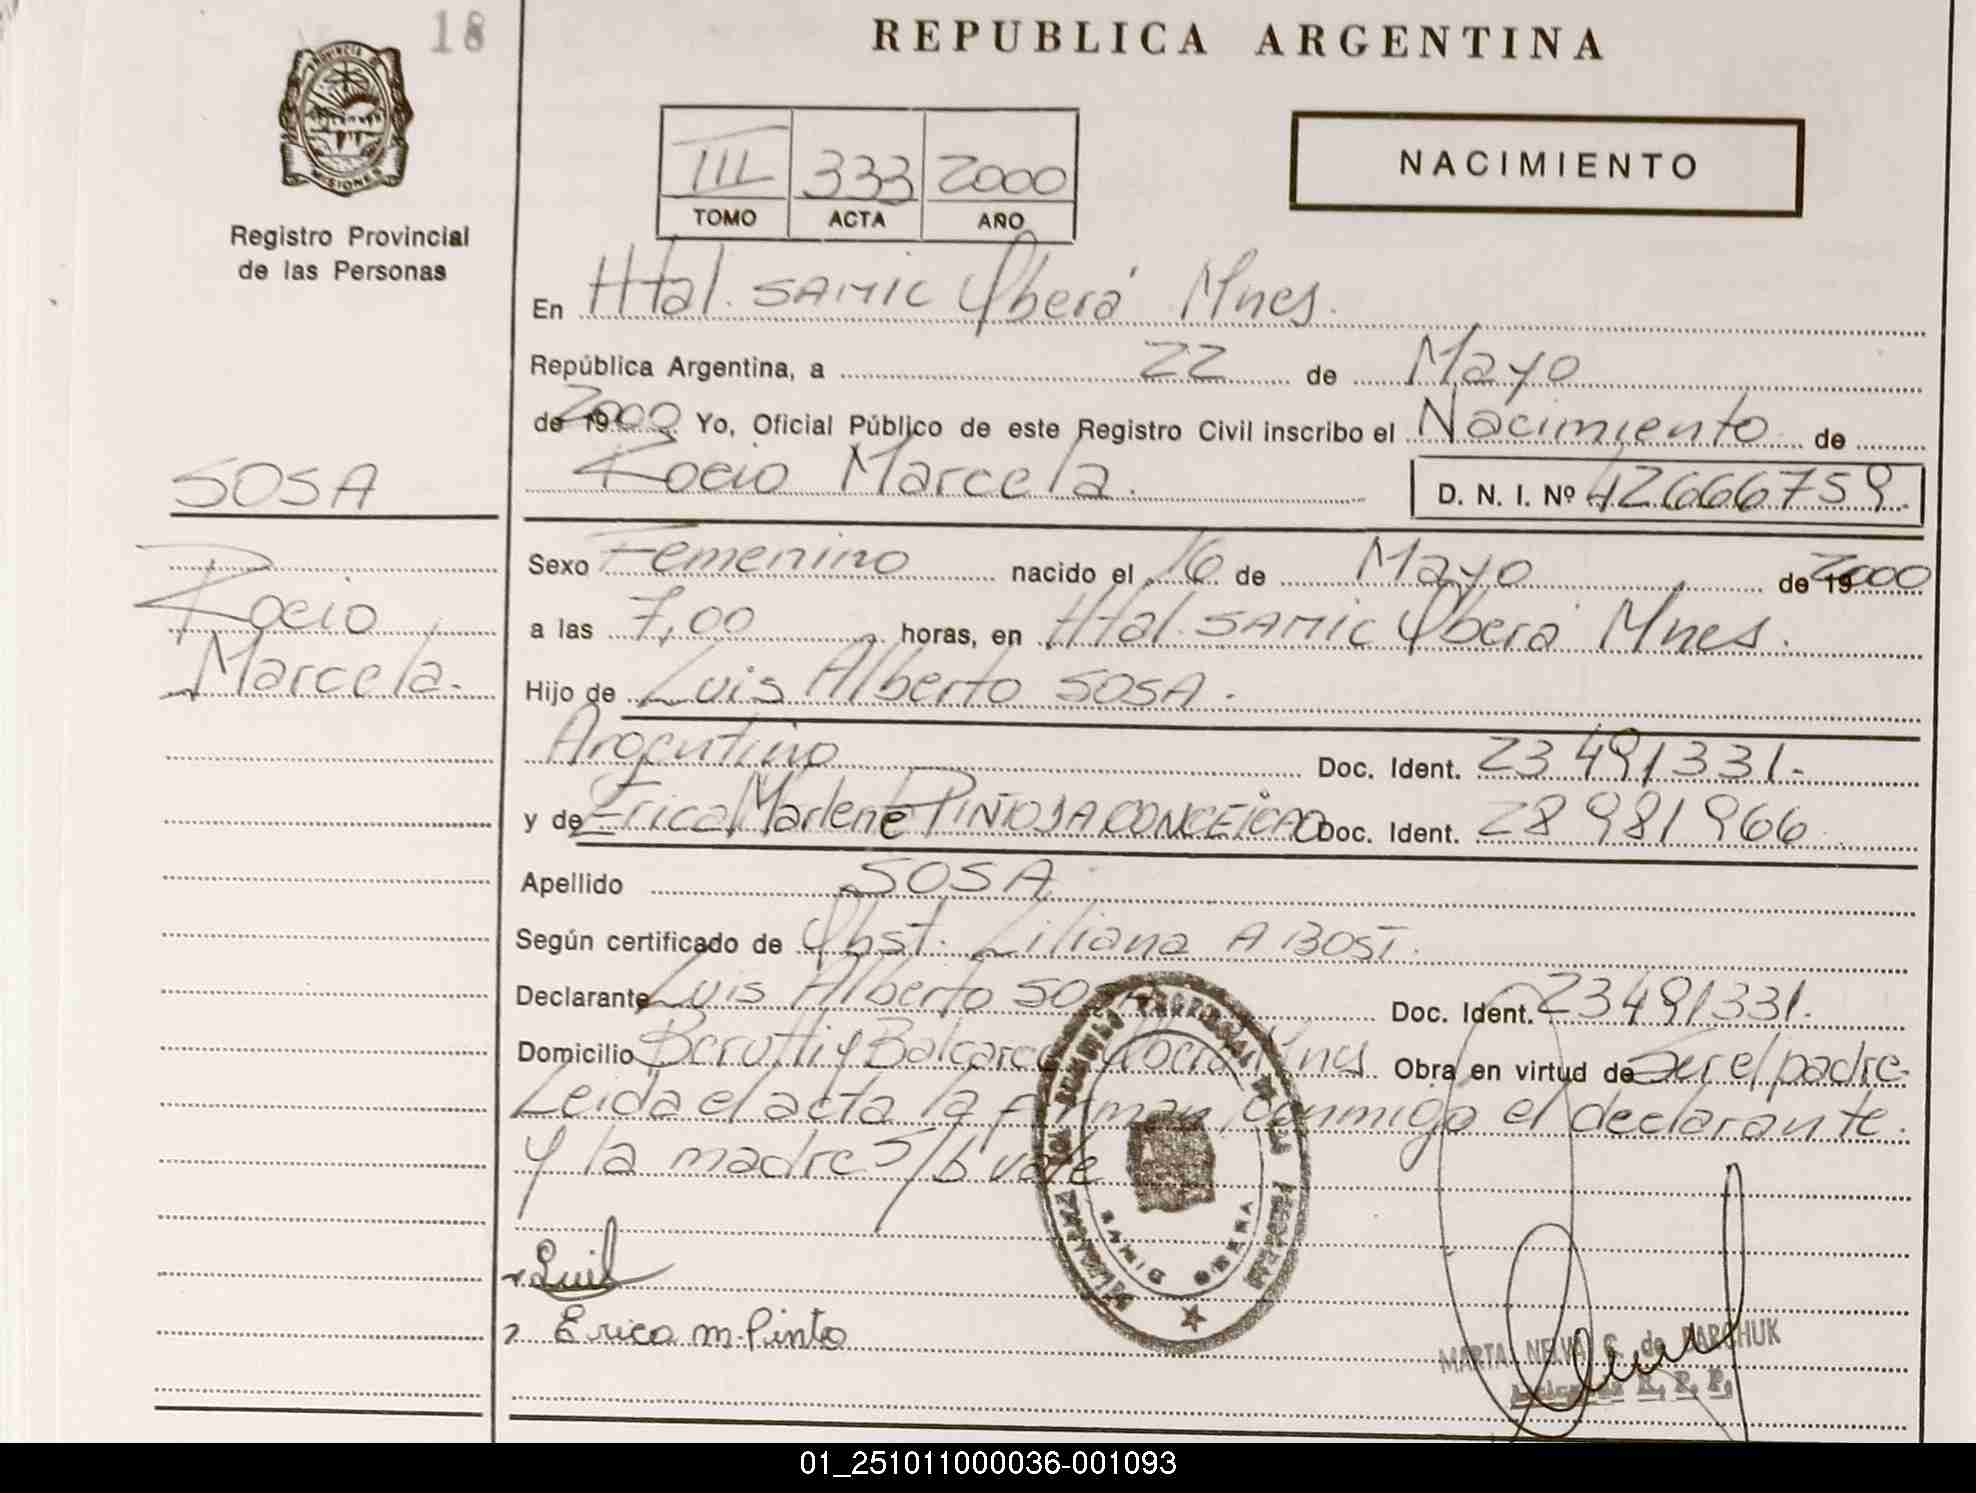 18
REPUBLICA ARGENTINA
PROVINCIA DE MISIONES
Registro Provincial
de las Personas
III 333 2000
TOMO ACTA AÑO
NACIMIENTO
En Htal. SAMIC Oberá Mnes.
República Argentina, a 22 de Mayo
de 19 2000 Yo, Oficial Público de este Registro Civil inscribo el Nacimiento de
Rocio Marcela. D. N. I. Nº 42666759.
SOSA
Rocio
Marcela.
Sexo Femenino nacido el 16 de Mayo de 19 2000
a las 7,00 horas, en Htal. SAMIC Oberá Mnes.
Hijo de Luis Alberto SOSA.
Argentino Doc. Ident. 23491331.
y de Erica Marlene PINTO DA CONCEICAO Doc. Ident. 28981966
Apellido SOSA
Según certificado de Obst. Liliana A BOST.
Declarante Luis Alberto SOSA Doc. Ident. 23491331.
Domicilio Berutti y Balcarce Oberá Mnes Obra en virtud de Ser el padre.
Leida el acta la firman conmigo el declarante.
y la madre S/b vale
SAMIC OBERA
Luis
Erica M. Pinto
MARTA NELVA de
R. P. P.
01_251011000036-001093